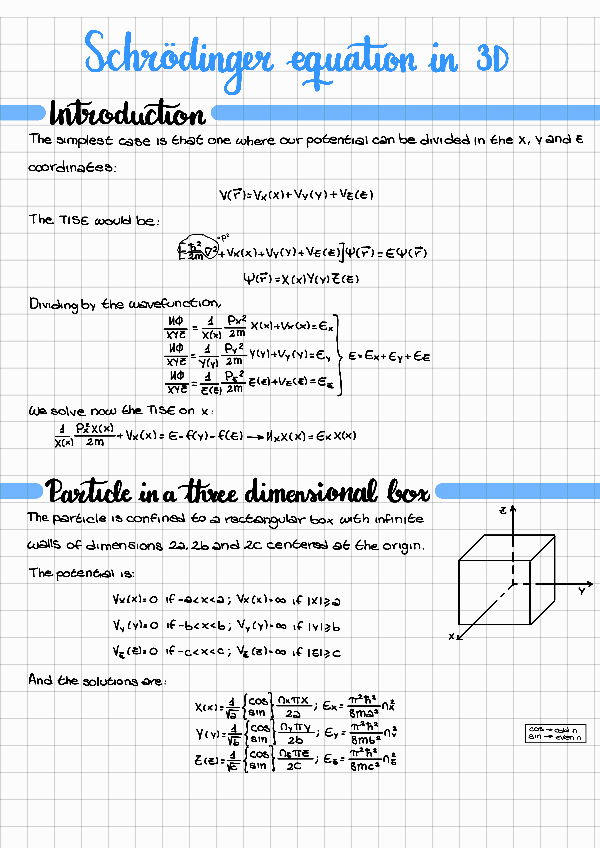 Schrödinger equation in 3D
Introduction
The simplest case is that one where our potential can be divided in the x, y and z
coordinates:
V(r⃗)=Vx(x)+Vy(y)+Vz(z)
The TISE would be:
=p²
[-ħ²/2m ∇²+Vx(x)+Vy(y)+Vz(z)]Ψ(r⃗)=EΨ(r⃗)
Ψ(r⃗)=X(x)Y(y)Z(z)
Dividing by the wavefunction,
HΦ/XYZ = 1/X(x) Px²/2m X(x)+Vx(x)=Ex
HΦ/XYZ = 1/Y(y) Py²/2m Y(y)+Vy(y)=Ey } E=Ex+Ey+Ez
HΦ/XYZ = 1/Z(z) Pz²/2m Z(z)+Vz(z)=Ez
We solve now the TISE on x:
1/X(x) Px²X(x)/2m + Vx(x) = E-f(y)-f(z) → HxX(x)=ExX(x)
Particle in a three dimensional box
The particle is confined to a rectangular box with infinite
walls of dimensions 2a, 2b and 2c centered at the origin.
The potential is:
Vx(x)=0 if -a<x<a; Vx(x)=∞ if |x|≥a
Vy(y)=0 if -b<x<b; Vy(y)=∞ if |y|≥b
Vz(z)=0 if -c<x<c; Vz(z)=∞ if |z|≥c
z
y
x
And the solutions are:
X(x)=1/√a {cos sin} nxπx/2a; Ex=π²ħ²/8ma² nx²
Y(y)=1/√b {cos sin} nyπy/2b; Ey=π²ħ²/8mb² ny²
Z(z)=1/√c {cos sin} nzπz/2c; Ez=π²ħ²/8mc² nz²
cos → odd n
sin → even n